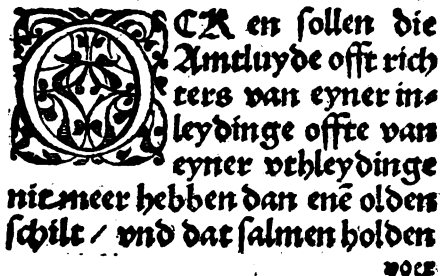 OCK en sollen die
Amtluyde offt rich
ters van eyner in⸗
leydinge offte van
eyner vthleydinge
nit meer hebben dan enē olden
schilt / vnd dat salmen holden
voer